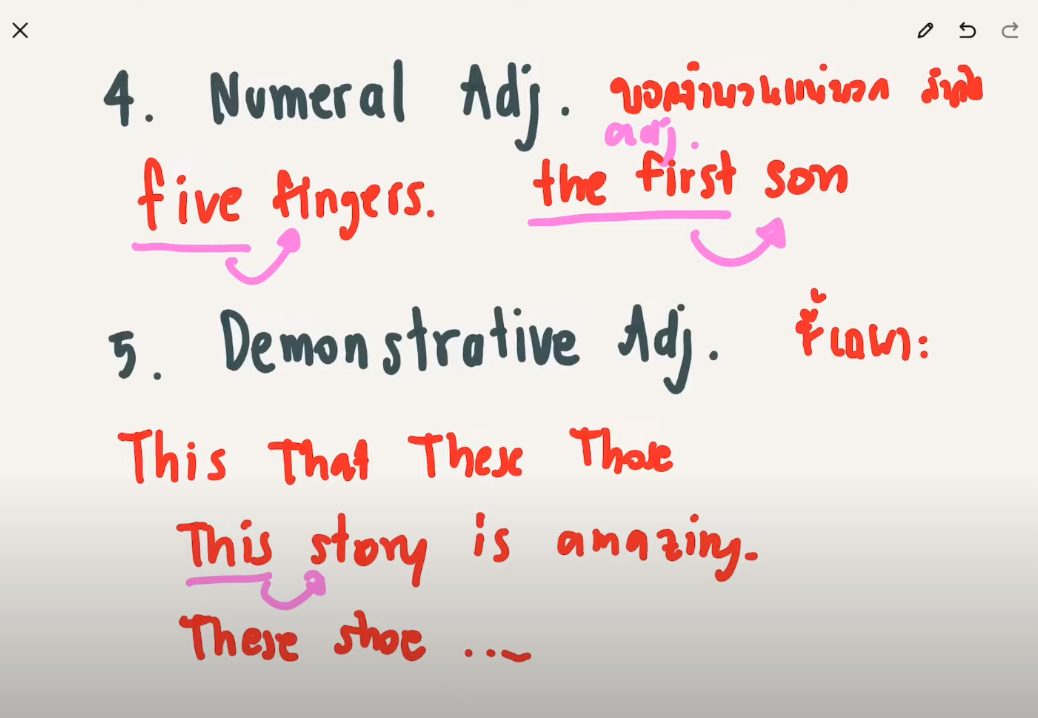 4. Numeral Adj. บอกจำนวนแน่นอน ลำดับ
adj.
five fingers. the first son
5. Demonstrative Adj. ชี้เฉพาะ
This That These Those
This story is amazing.
These shoe ...